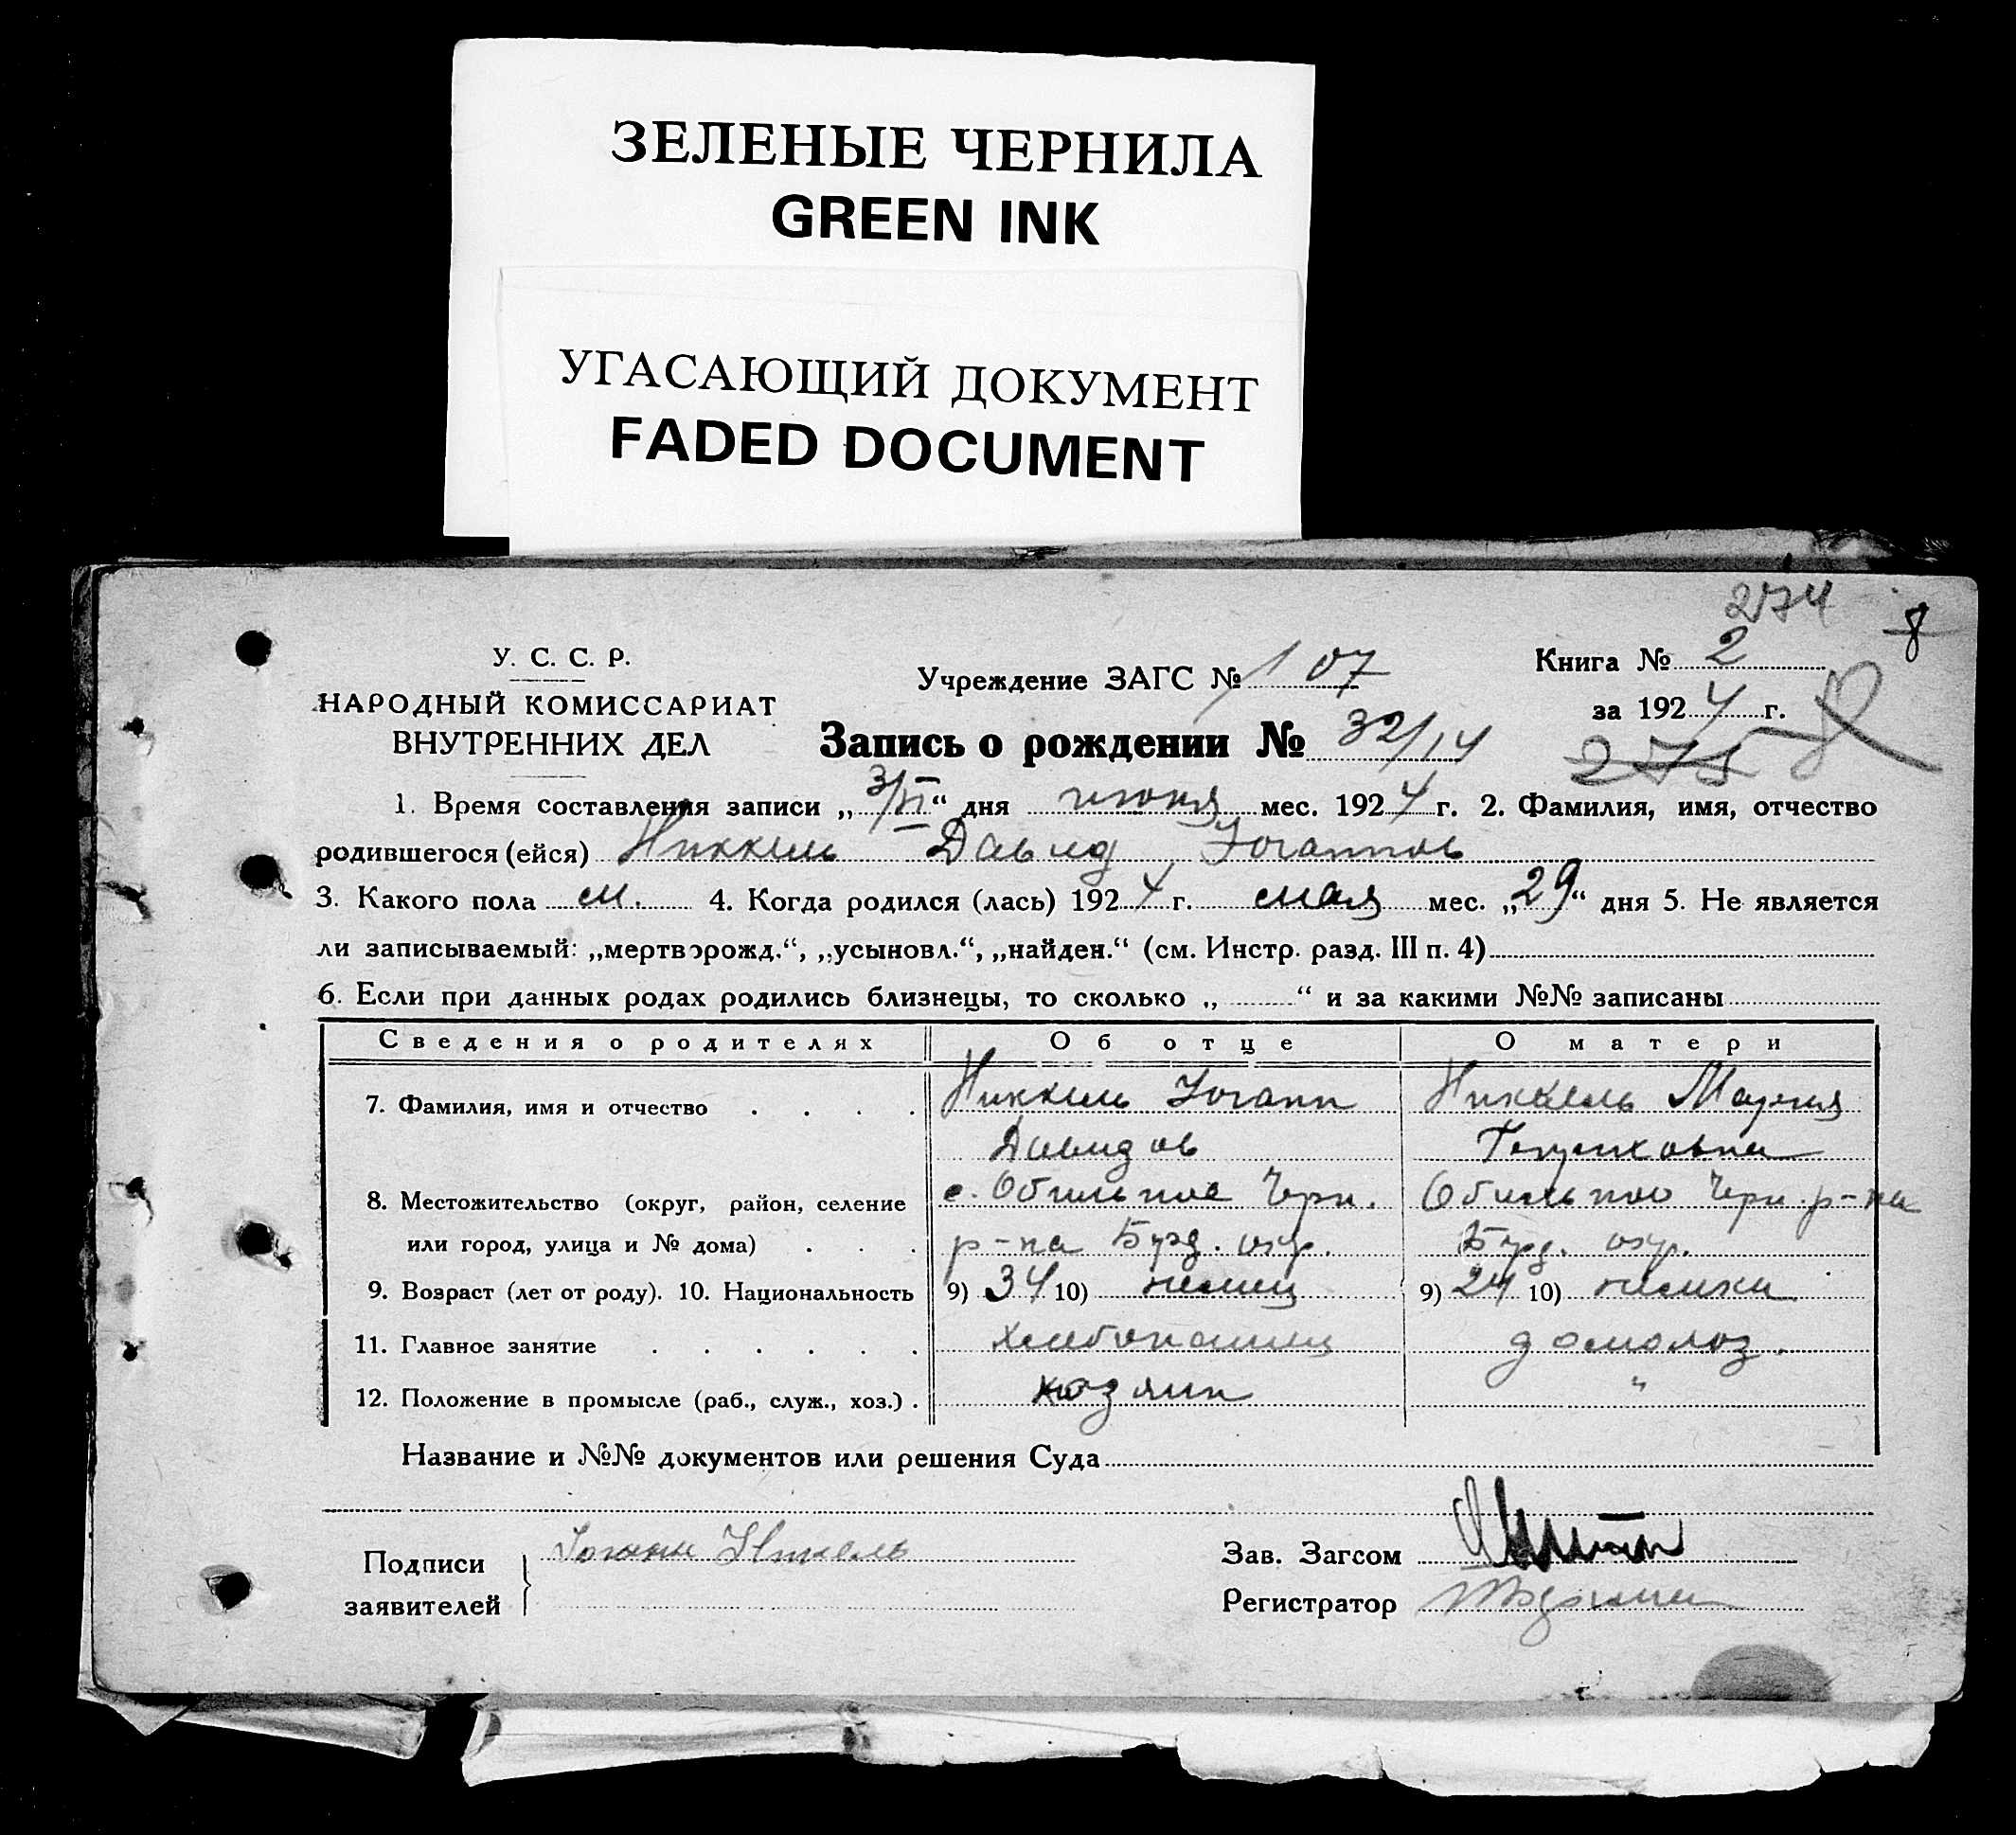 ЗЕЛЕНЫЕ ЧЕРНИЛА
GREEN INK
УГАСАЮЩИЙ ДОКУМЕНТ
FADED DOCUMENT
274
8
У. С. С. Р.
НАРОДНЫЙ КОМИССАРИАТ
ВНУТРЕННИХ ДЕЛ
Учреждение ЗАГС № 107
Книга № 2
за 1924 г.
275
Запись о рождении № 32/14
1. Время составления записи „3/VI“ дня июня мес. 1924 г. 2. Фамилия, имя, отчество
родившегося (ейся) Никкель Давид Іоганнов
3. Какого пола м. 4. Когда родился (лась) 1924 г. мая мес. „29“ дня 5. Не является
ли записываемый: „мертворожд.“, „усыновл.“, „найден.“ (см. Инстр. разд. III п. 4)
6. Если при данных родах родились близнецы, то сколько „ “ и за какими №№ записаны
Сведения о родителях Об отце О матери
7. Фамилия, имя и отчество . . . . Никкель Іоганн Никкель Мария
Давидов Генриховна
8. Местожительство (округ, район, селение с. Обильное Черн. Обильное Черн. р-на
или город, улица и № дома) . . . р-на Бурд. окр. Бурд. окр.
9. Возраст (лет от роду). 10. Национальность 9) 34 10) немец 9) 24 10) немка
11. Главное занятие . . . . . . хлебопашец домохоз.
12. Положение в промысле (раб., служ., хоз.) . хозяин „
Название и №№ документов или решения Суда
Подписи
заявителей
Іоганн Никель
Зав. Загсом
Регистратор